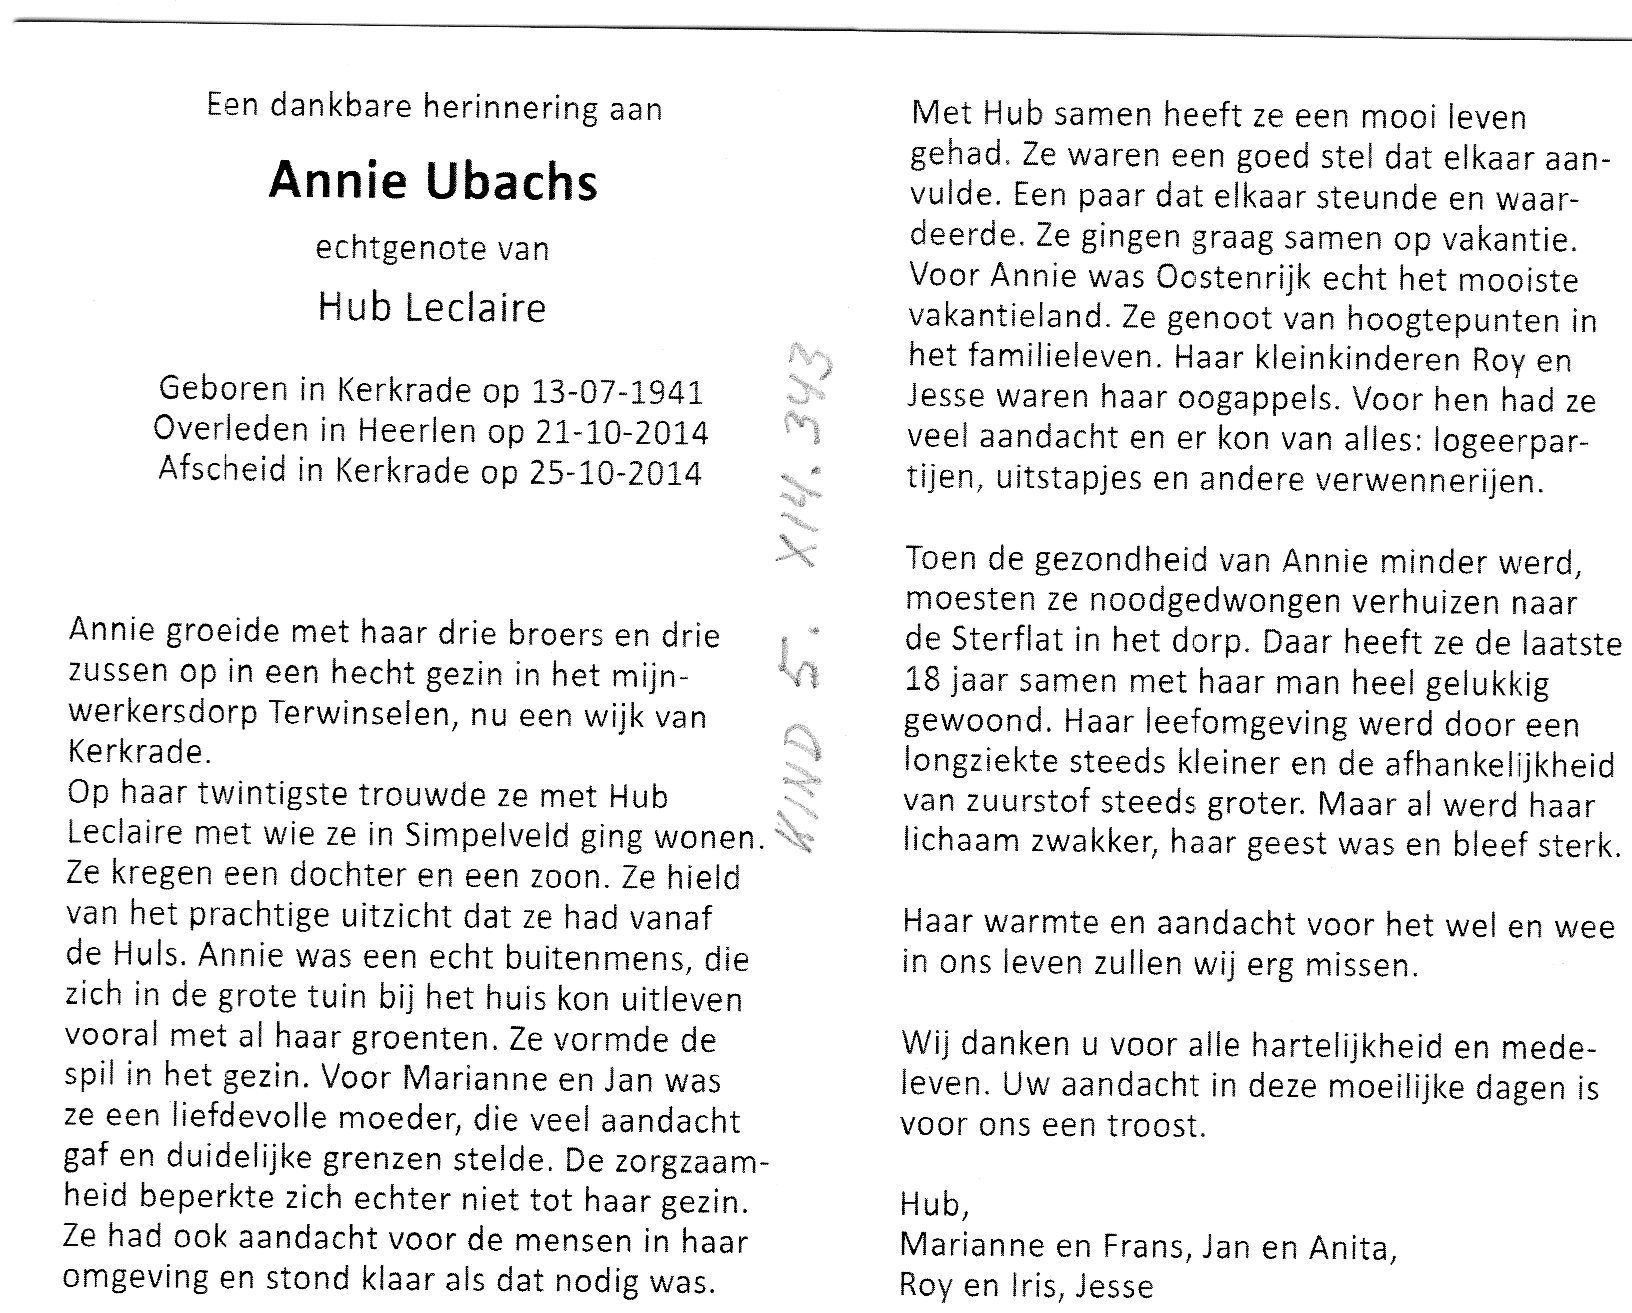 Een dankbare herinnering aan
Annie Ubachs
echtgenote van
Hub Leclaire
Geboren in Kerkrade op 13-07-1941
Overleden in Heerlen op 21-10-2014
Afscheid in Kerkrade op 25-10-2014
Annie groeide met haar drie broers en drie
zussen op in een hecht gezin in het mijn-
werkersdorp Terwinselen, nu een wijk van
Kerkrade.
Op haar twintigste trouwde ze met Hub
Leclaire met wie ze in Simpelveld ging wonen.
Ze kregen een dochter en een zoon. Ze hield
van het prachtige uitzicht dat ze had vanaf
de Huls. Annie was een echt buitenmens, die
zich in de grote tuin bij het huis kon uitleven
vooral met al haar groenten. Ze vormde de
spil in het gezin. Voor Marianne en Jan was
ze een liefdevolle moeder, die veel aandacht
gaf en duidelijke grenzen stelde. De zorgzaam-
heid beperkte zich echter niet tot haar gezin.
Ze had ook aandacht voor de mensen in haar
omgeving en stond klaar als dat nodig was.
KIND 5. X14.343
Met Hub samen heeft ze een mooi leven
gehad. Ze waren een goed stel dat elkaar aan-
vulde. Een paar dat elkaar steunde en waar-
deerde. Ze gingen graag samen op vakantie.
Voor Annie was Oostenrijk echt het mooiste
vakantieland. Ze genoot van hoogtepunten in
het familieleven. Haar kleinkinderen Roy en
Jesse waren haar oogappels. Voor hen had ze
veel aandacht en er kon van alles: logeerpar-
tijen, uitstapjes en andere verwennerijen.
Toen de gezondheid van Annie minder werd,
moesten ze noodgedwongen verhuizen naar
de Sterflat in het dorp. Daar heeft ze de laatste
18 jaar samen met haar man heel gelukkig
gewoond. Haar leefomgeving werd door een
longziekte steeds kleiner en de afhankelijkheid
van zuurstof steeds groter. Maar al werd haar
lichaam zwakker, haar geest was en bleef sterk.
Haar warmte en aandacht voor het wel en wee
in ons leven zullen wij erg missen.
Wij danken u voor alle hartelijkheid en mede-
leven. Uw aandacht in deze moeilijke dagen is
voor ons een troost.
Hub,
Marianne en Frans, Jan en Anita,
Roy en Iris, Jesse